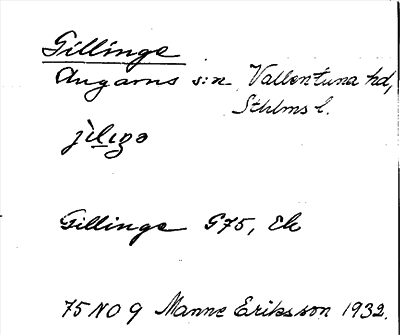 Gillinge
Angarns s:n Vallentuna hd,
Sthlms l.
Gillinge G75, Ek
75 NO 9 Manne Eriksson 1932.